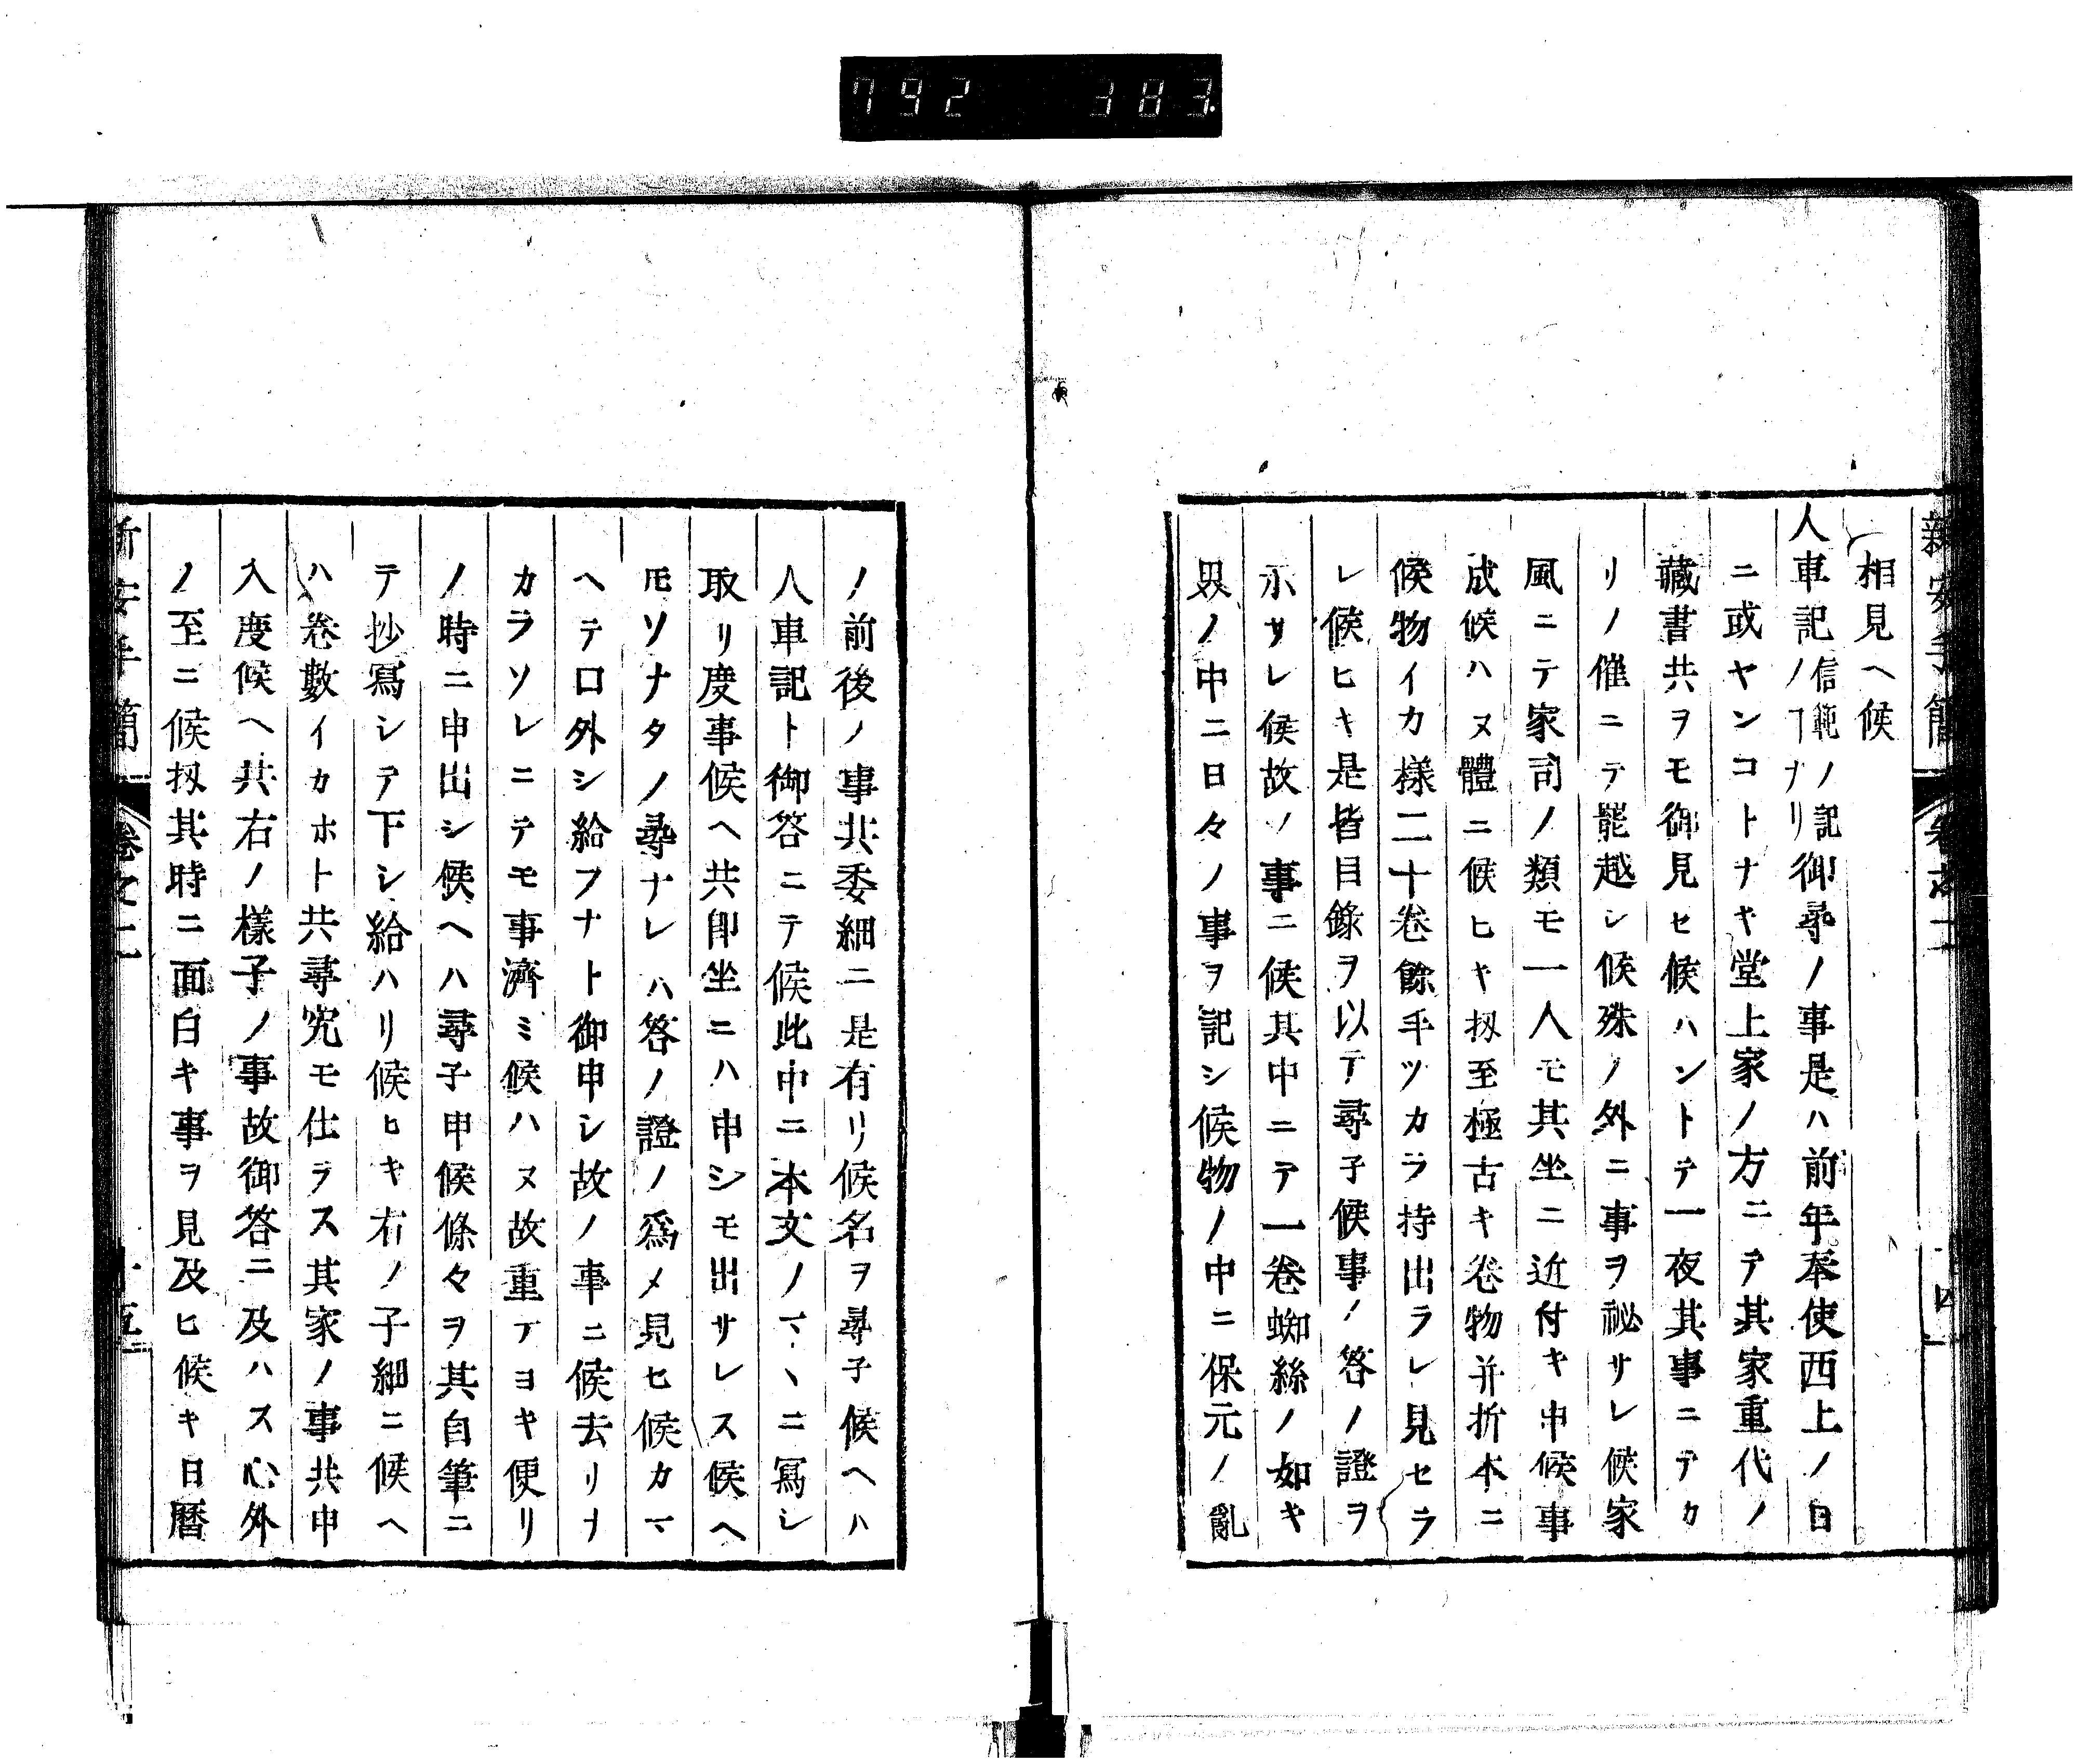 792 383
新安手簡 卷之二 十四
相見ヘ候
人車記信範ノ記ノヿナリ御尋ノ事是ハ前年奉使西上ノ日
ニ或ヤンコトナキ堂上家ノ方ニテ其家重代ノ
藏書共ヲモ御見セ候ハントテ一夜其事ニテカ
リノ催ニテ罷越シ候殊ノ外ニ事ヲ祕サレ候家
風ニテ家司ノ類モ一人モ其坐ニ近付キ申候事
成候ハヌ體ニ候ヒキ扨至極古キ卷物并折本ニ
候物イカ樣二十卷餘手ツカラ持出ラレ見セラ
レ候ヒキ是皆目錄ヲ以テ尋子候事ノ答ノ證ヲ
示サレ候故ノ事ニ候其中ニテ一卷蜘絲ノ如キ
界ノ中ニ日々ノ事ヲ記シ候物ノ中ニ保元ノ亂
ノ前後ノ事共委細ニ是有リ候名ヲ尋子候ヘハ
人車記ト御答ニテ候此中ニ本文ノマヽニ寫シ
取リ度事候ヘ共卽坐ニハ申シモ出サレス候ヘ
𪜈ソナタノ尋ナレハ答ノ證ノ爲メ見ヒ候カマ
ヘテ口外シ給フナト御申シ故ノ事ニ候去リナ
カラソレニテモ事濟ミ候ハヌ故重テヨキ便リ
ノ時ニ申出シ候ヘハ尋子申候條々ヲ其自筆ニ
テ抄寫シテ下シ給ハリ候ヒキ右ノ子細ニ候ヘ
ハ卷數イカホト共尋究モ仕ラス其家ノ事共申
入度候ヘ共右ノ樣子ノ事故御答ニ及ハス心外
ノ至ニ候扨其時ニ面白キ事ヲ見及ヒ候キ日曆
新安手簡 卷之二 十五